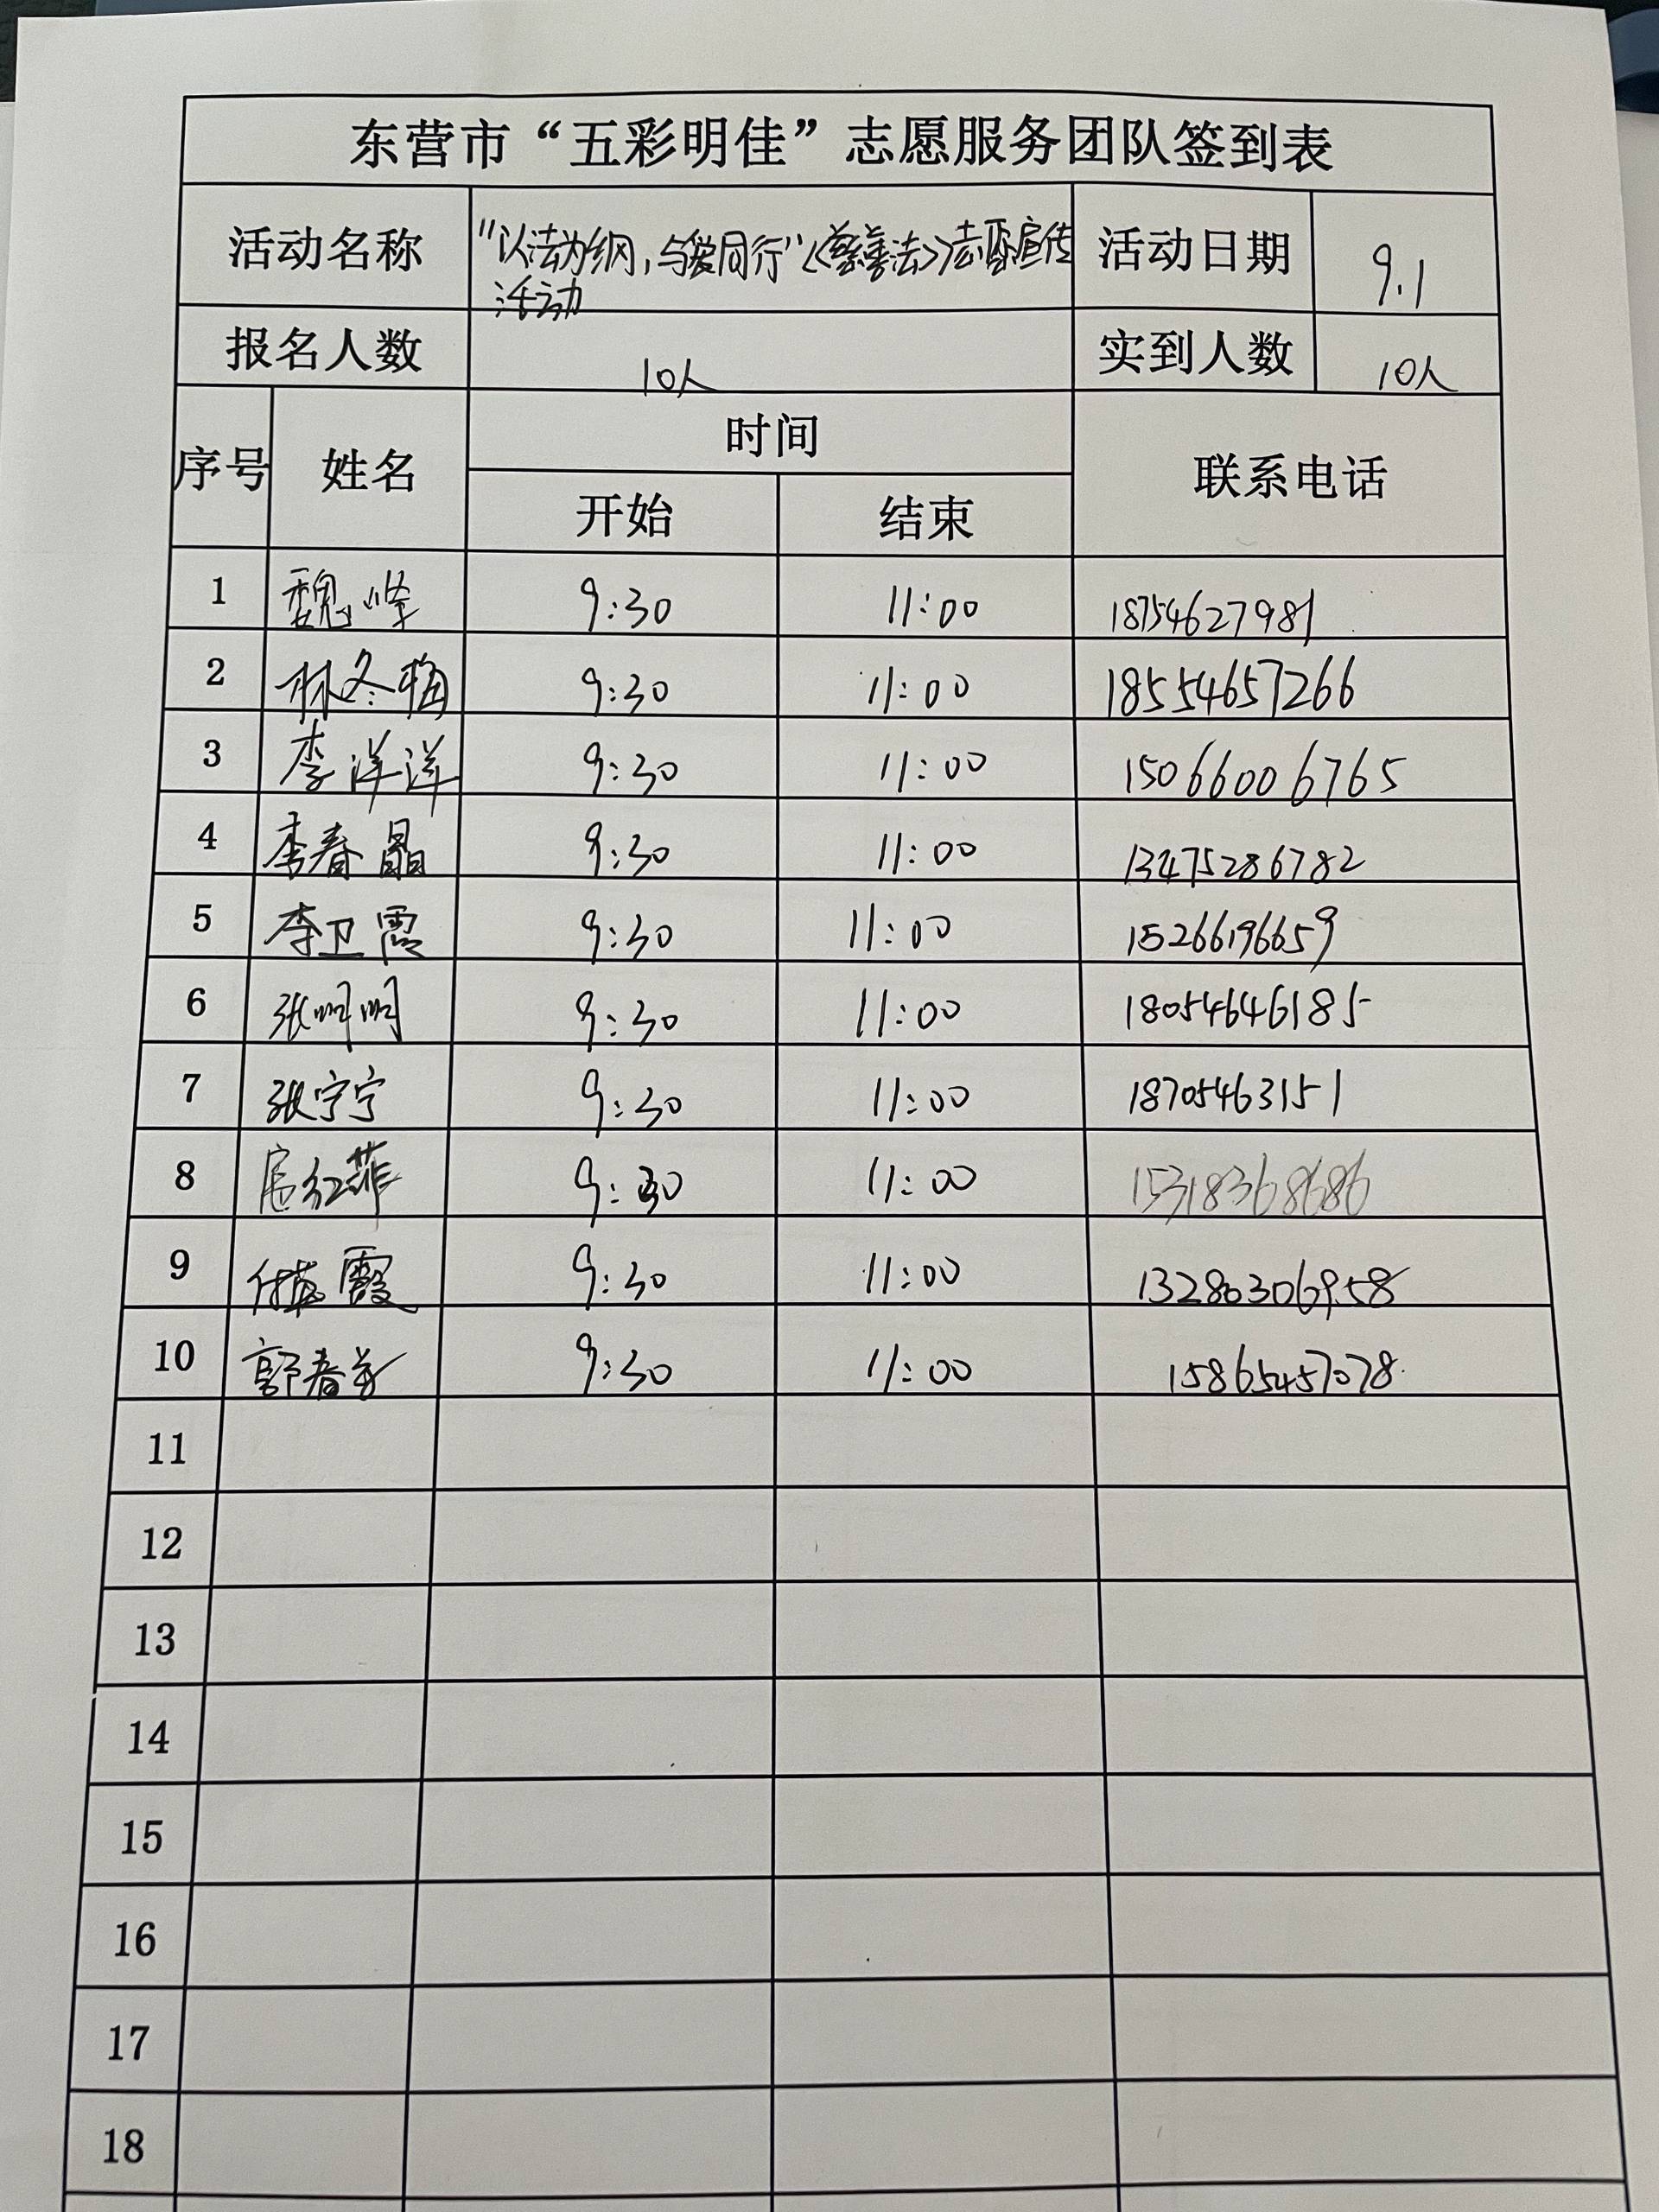 东营市“五彩明佳”志愿服务团队签到表
活动名称 “以法为纲,与爱同行”《慈善法》志愿宣传 活动日期 9.1
活动
报名人数 10人 实到人数 10人
序号 姓名 时间 联系电话
开始 结束
1 魏峰 9:30 11:00 18754627981
2 林冬梅 9:30 11:00 18554657266
3 李洋洋 9:30 11:00 15066006765
4 李春晶 9:30 11:00 13475286782
5 李卫霞 9:30 11:00 15266196659
6 张明明 9:30 11:00 18054646185
7 张宁宁 9:30 11:00 18705463151
8 红菲 9:30 11:00 15318368686
9 付英霞 9:30 11:00 13280306958
10 郭春 9:30 11:00 15865457078
11
12
13
14
15
16
17
18